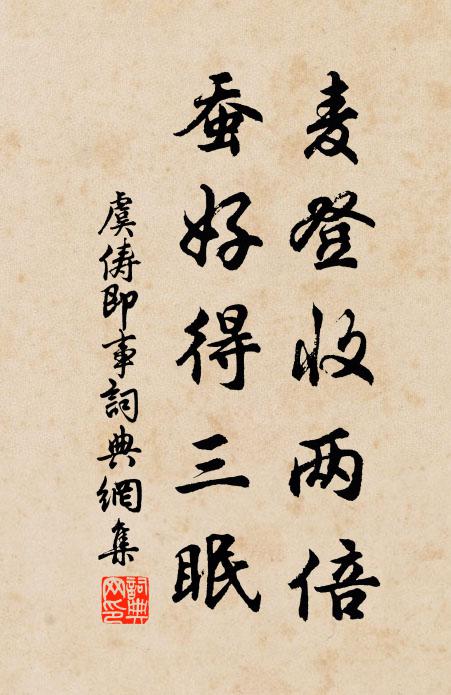 麦登收两倍
蚕好得三眠
虞儔即事詞典網集
詞典網印